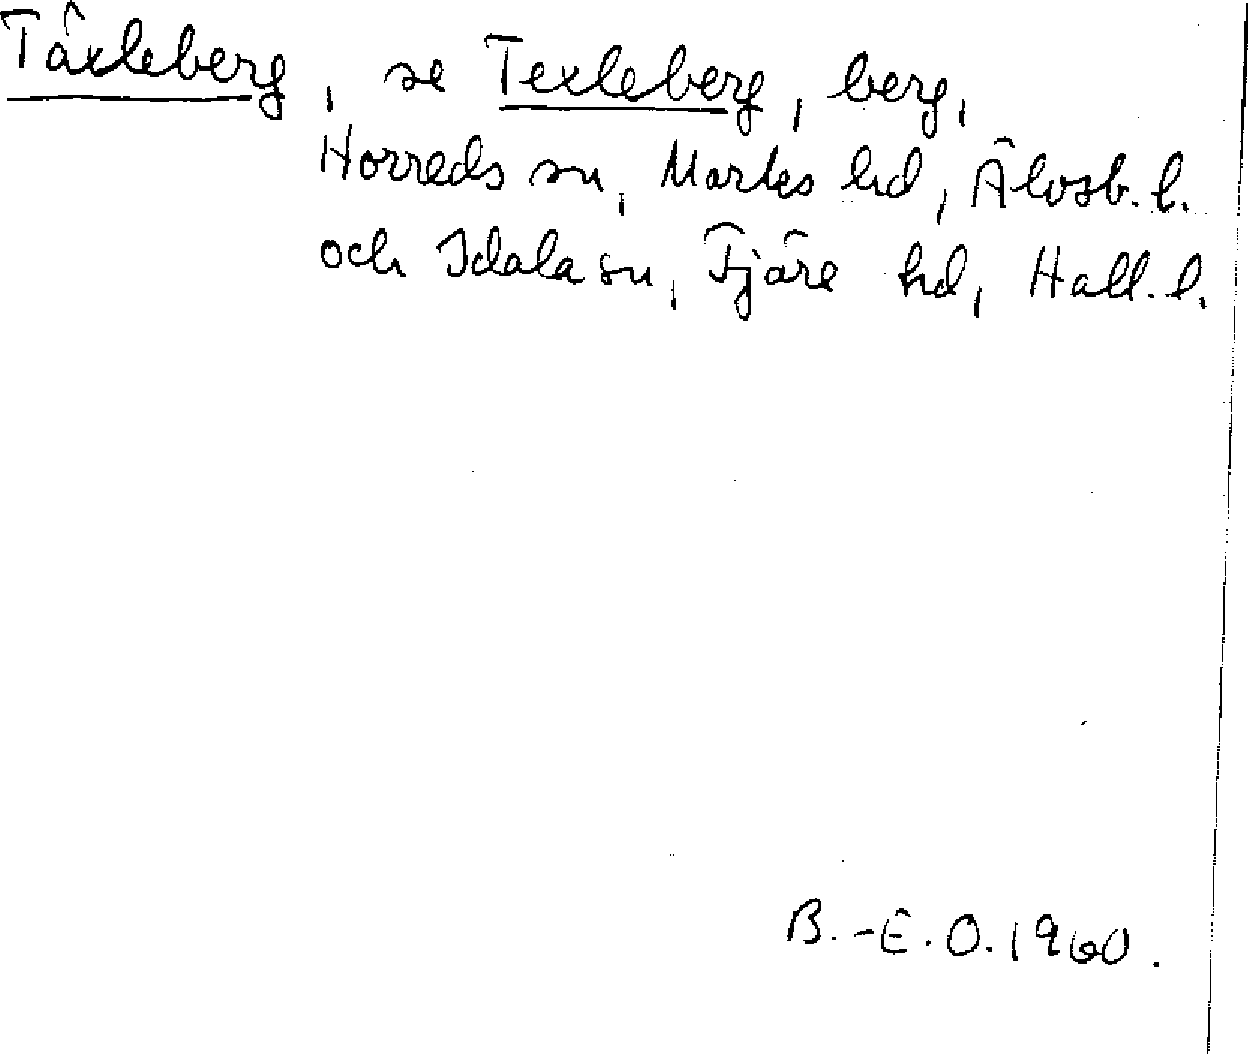 Täxleberg, se Texleberg, berg,
Horreds sn, Marks hd, Älvsb. l.
och Idala sn, Fjäre hd, Hall. l.
B.-E. O. 1960.